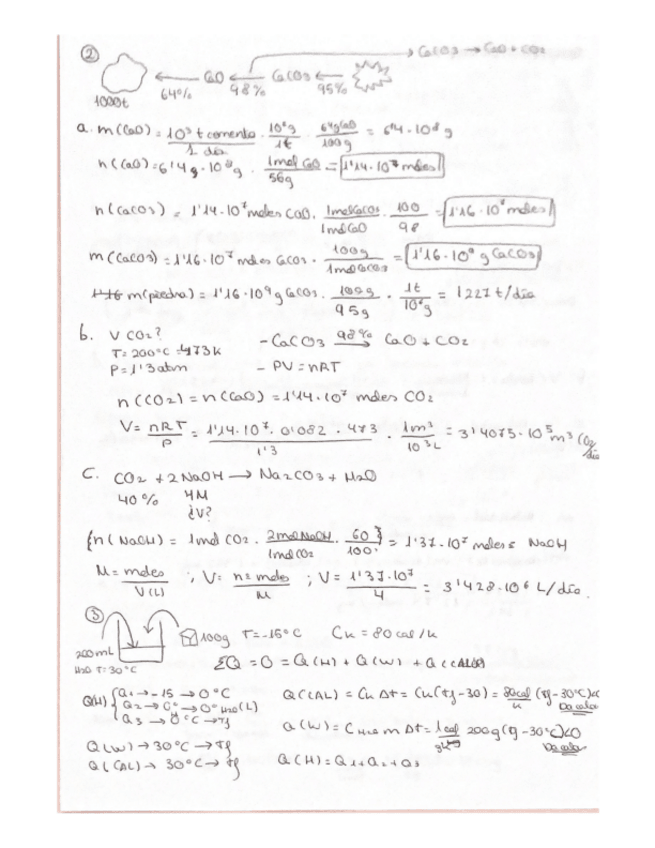 ② CaCO3 → CaO + CO2
1000t ← 64% CaO ← 98% CaCO3 ← 95%
a. m(CaO) = 10³ t cemento / 1 día · 10⁶g / 1t · 64g CaO / 100g = 6'4·10⁸ g
n(CaO) = 6'4 g·10⁸ g · 1mol CaO / 56g = 1'14·10⁷ moles
n(CaCO3) = 1'14·10⁷ moles CaO · 1mol CaCO3 / 1mol CaO · 100 / 98 = 1'16·10⁷ moles
m(CaCO3) = 1'16·10⁷ moles CaCO3 · 100g / 1mol CaCO3 = 1'16·10⁹ g CaCO3
m(piedra) = 1'16·10⁹ g CaCO3 · 100g / 95g · 1t / 10⁶g = 1221 t/día
b. V CO2? - CaCO3 98% → CaO + CO2
T = 200°C = 473K
P = 1'3 atm - PV = nRT
n(CO2) = n(CaO) = 1'14·10⁷ moles CO2
V = nRT / P = 1'14·10⁷ · 0'082 · 473 / 1'3 · 1m³ / 10³L = 3'4075·10⁵ m³ CO2 / día
C. CO2 + 2NaOH → Na2CO3 + H2O
40% 4M
¿V?
n(NaOH) = 1mol CO2 · 2mol NaOH / 1mol CO2 · 60 / 100 = 1'37·10⁷ moles NaOH
M = moles / V(L) ; V = n = moles / M ; V = 1'37·10⁷ / 4 = 3'428·10⁶ L/día.
③ 100g T = -15°C Ck = 80 cal/k
200mL
H2O T=30°C ΣQ = 0 = Q(H) + Q(W) + Q(CAL)
Q(H) { Q1 → -15 → 0°C Q(CAL) = Ck Δt = Ck(tf - 30) = 80cal / k (tf - 30°C) <0
Q2 → 0° → 0° H2O(L) Da calor
Q3 → 0°C → Tf Q(W) = C H2O m Δt = 1 cal 200g (tf - 30°C) <0
Q(W) → 30°C → Tf Da calor
Q(CAL) → 30°C → Tf Q(H) = Q1 + Q2 + Q3